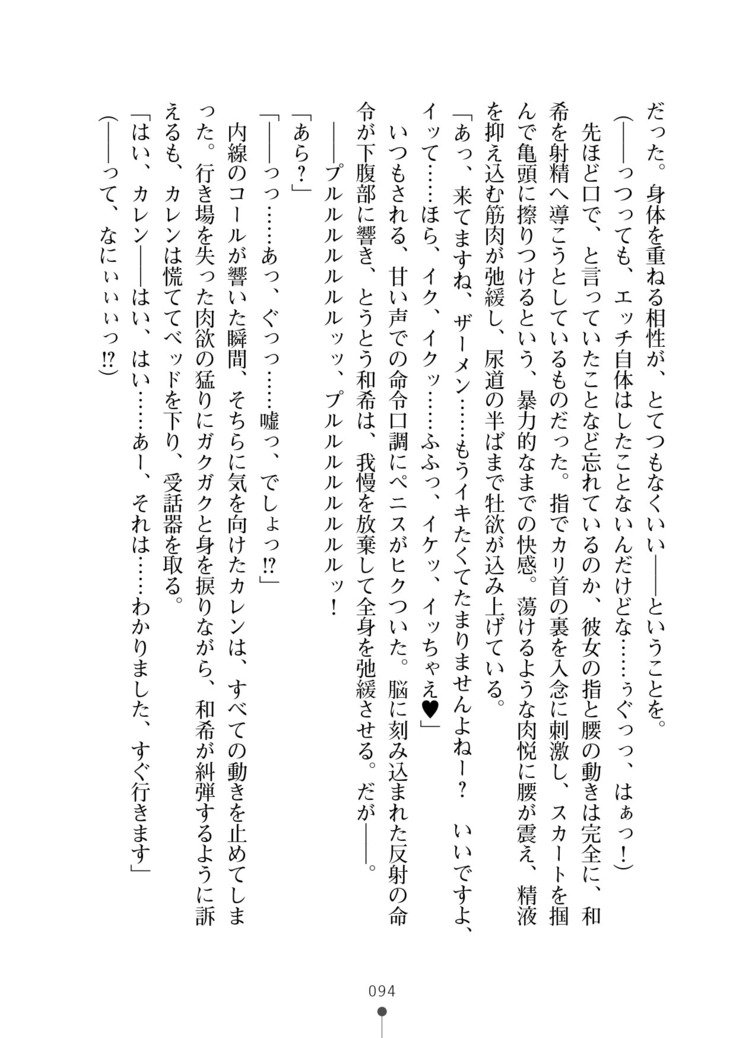 だった。身体を重ねる相性が、とてつもなくいい――ということを。
（――っつっても、エッチ自体はしたことないんだけどな……ぅぐっっ、はぁっ！）
　先ほど口で、と言っていたことなど忘れているのか、彼女の指と腰の動きは完全に、和
希を射精へ導こうとしているものだった。指でカリ首の裏を入念に刺激し、スカートを掴
んで亀頭に擦りつけるという、暴力的なまでの快感。蕩けるような肉悦に腰が震え、精液
を抑え込む筋肉が弛緩し、尿道の半ばまで牡欲が込み上げている。
「あっ、来てますね、ザーメン……もうイキたくてたまりませんよねー？　いいですよ、
イッて……ほら、イク、イクッ……ふふっ、イケッ、イッちゃえ♥」
　いつもされる、甘い声での命令口調にペニスがヒクついた。脳に刻み込まれた反射の命
令が下腹部に響き、とうとう和希は、我慢を放棄して全身を弛緩させる。だが――。
　――プルルルルルルルッッ、プルルルルルルルルッ！
「あら？」
「――っっ……あっ、ぐっっ……嘘っ、でしょっ!?」
　内線のコールが響いた瞬間、そちらに気を向けたカレンは、すべての動きを止めてしま
った。行き場を失った肉欲の猛りにガクガクと身を捩りながら、和希が糾弾するように訴
えるも、カレンは慌ててベッドを下り、受話器を取る。
「はい、カレン――はい、はい……あー、それは……わかりました、すぐ行きます」
（――って、なにぃぃぃっ!?）
094